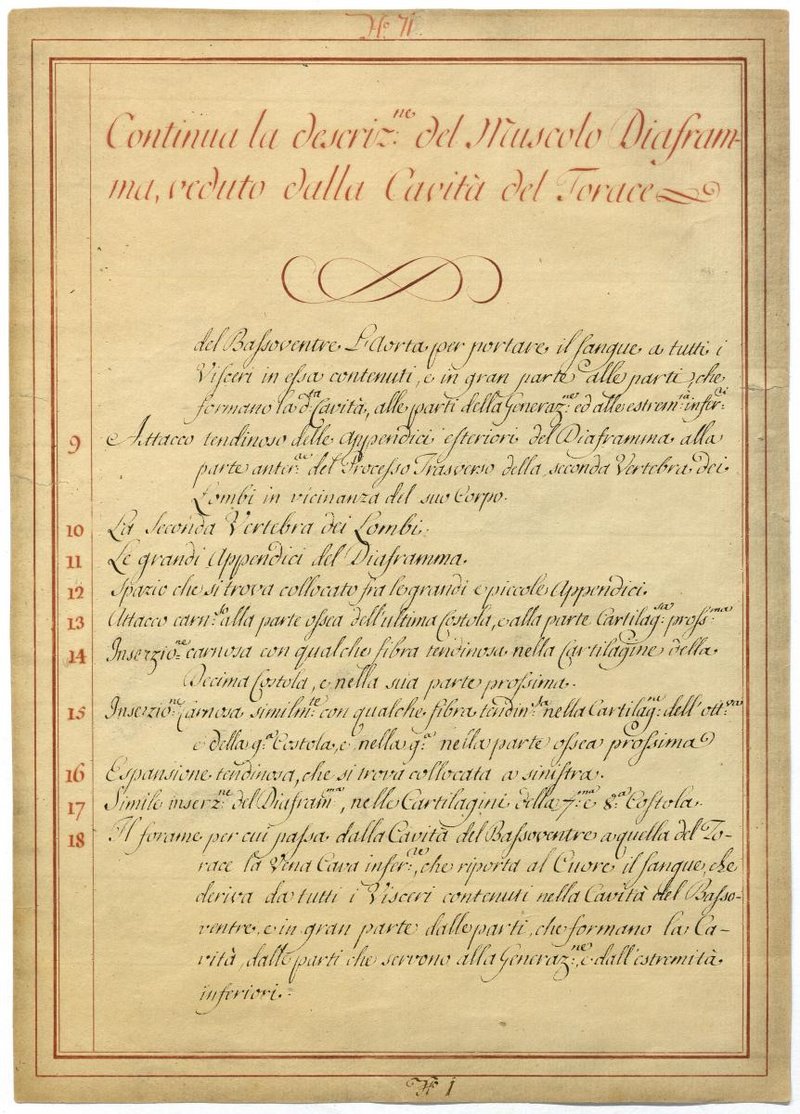 N.º 71.
Continua la descriz.ne del Muscolo Diafram-
ma, veduto dalla Cavità del Torace
del Bassoventre L'Aorta per portare il sangue a tutti i
Visceri in essa contenuti, e in gran parte alle parti, che
formano la d.ta Cavità, alle parti della Generaz.ne ed alle estrem.tà infer.ri
9 Attacco tendinoso delle Appendici esteriori del Diaframma alla
parte anter.re del Processo Trasverso della seconda Vertebra dei
Lombi in vicinanza del suo Corpo.
10 La Seconda Vertebra dei Lombi.
11 Le grandi Appendici del Diaframma.
12 Spazio che si trova collocato fra le grandi e piccole Appendici.
13 Attacco carn.so alla parte ossea dell'ultima Costola, e alla parte Cartilag.sa pross.ma
14 Inserzio.ne carnosa con qualche fibra tendinosa nella Cartilagine della
Decima Costola, e nella sua parte prossima.
15 Inserzio.ne Carnosa similm.te con qualche fibra tendin.sa nella Cartilag.ne dell'ott.va
e della 9.a Costola, e nella 9.a nella parte ossea prossima
16 Espansione tendinosa, che si trova collocata a sinistra.
17 Simile inserz.ne del Diafram.ma, nelle Cartilagini della 7.ma e 8.a Costola.
18 Il forame per cui passa dalla Cavità del Bassoventre a quella del To-
race la Vena Cava infer.re, che riporta al Cuore il sangue, che
deriva da tutti i Visceri contenuti nella Cavità del Basso-
ventre, e in gran parte dalle parti, che formano la Ca-
vità, dalle parti che servono alla Generaz.ne, e dall'estremità
inferiori.
N.º 1